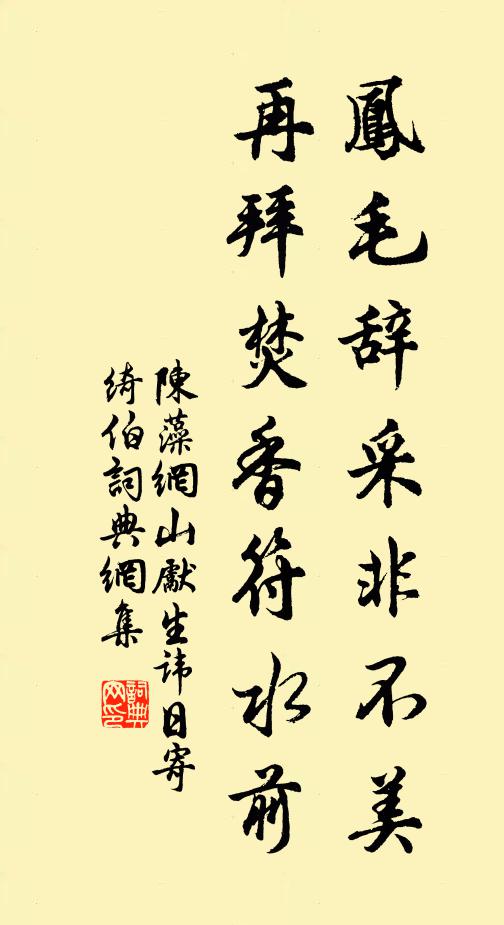 鳳毛辞采非不美
再拜焚香符水前
陳藻網山獻生諱日寄
綺伯詞典網集
詞典网印